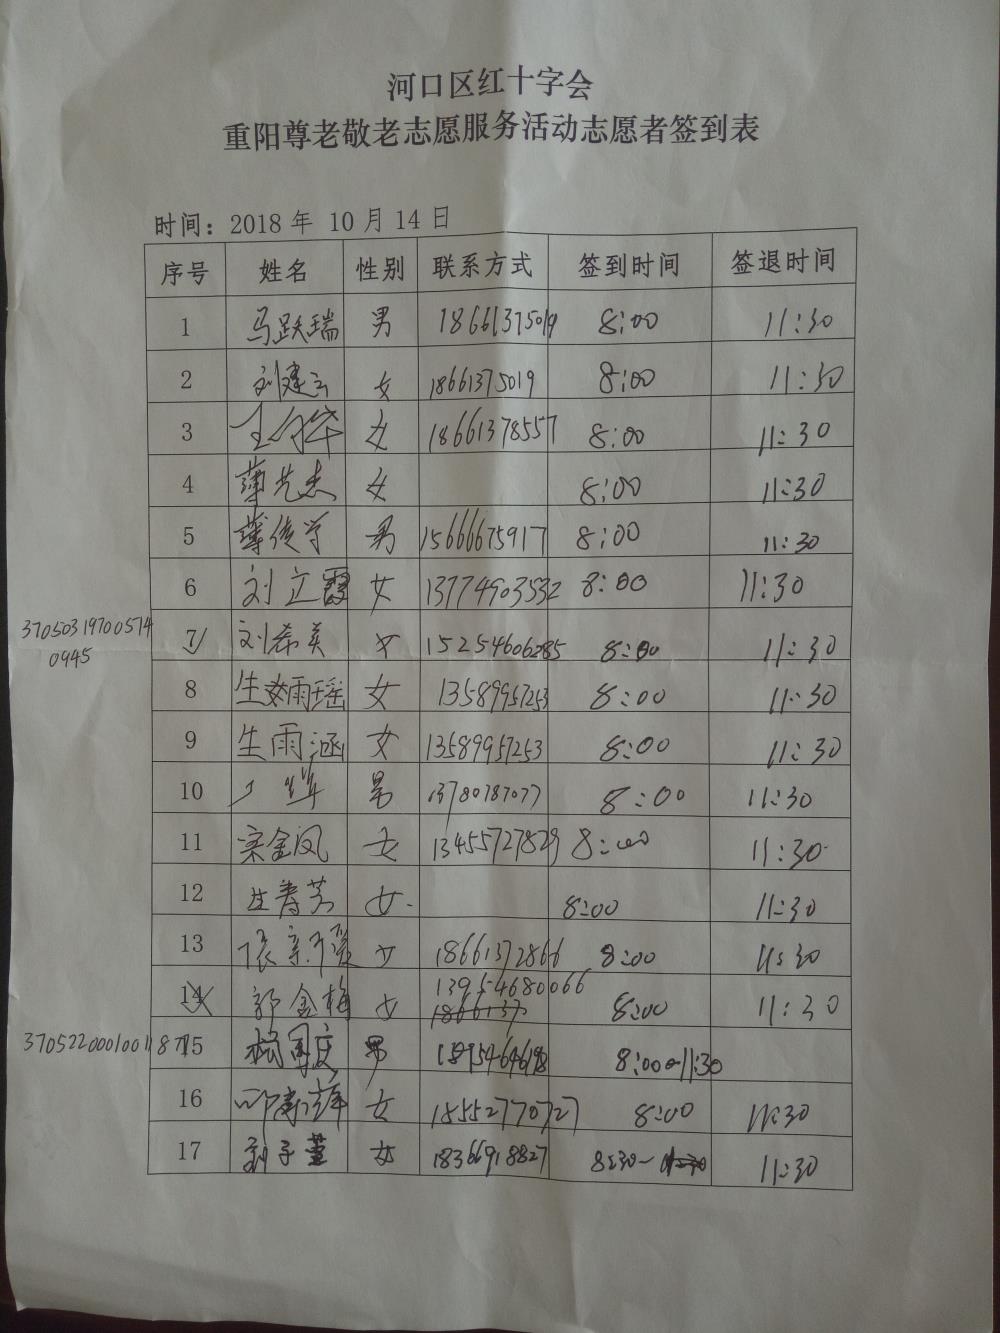 河口区红十字会
重阳尊老敬老志愿服务活动志愿者签到表
时间：2018 年 10 月 14 日
序号 姓名 性别 联系方式 签到时间 签退时间
1 马跃瑞 男 18661375019 8:00 11:30
2 刘建云 女 18661375019 8:00 11:30
3 女 18661378557 8:00 11:30
4 薄先杰 女 8:00 11:30
5 薄俊学 男 15666675917 8:00 11:30
6 刘立霞 女 13774903532 8:00 11:30
37050319700514
0945
7 刘希英 女 15254606285 8:00 11:30
8 生雨瑶 女 13589957253 8:00 11:30
9 生雨涵 女 13589957253 8:00 11:30
10 男 13780787077 8:00 11:30
11 宋金凤 女 13455727829 8:00 11:30
12 女 8:00 11:30
13 女 18661372866 8:00 11:30
13954680066
14 郭金梅 女 1866137 8:00 11:30
15 杨国庆 男 8:00-11:30
16 女 18552770727 8:00 11:30
17 刘子萱 女 18366918827 8:30- 11:30 11:30